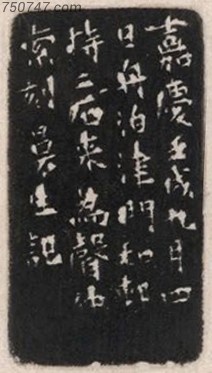 750747.com
嘉慶壬戌九月四
日舟泊津門和起
持二石來為聲山
索刻曼生記